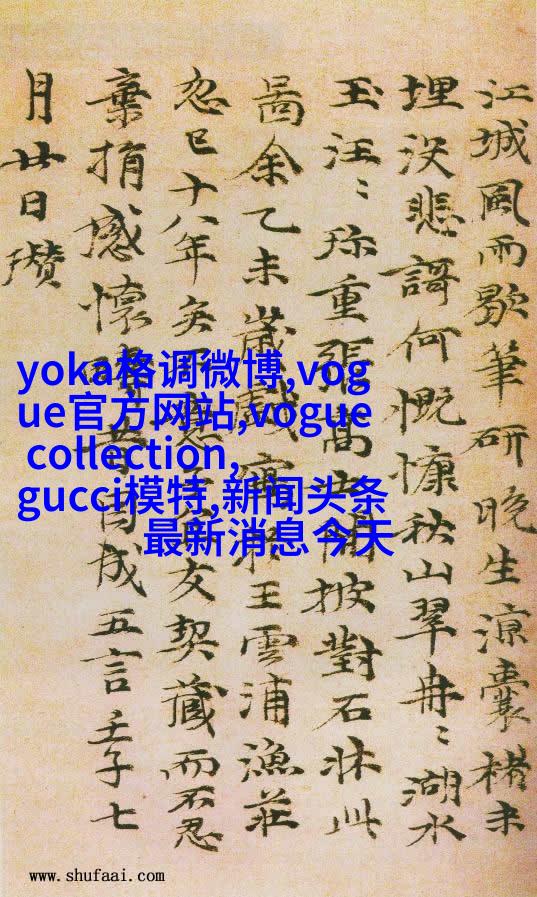 江城風雨歇筆研晚生涼囊楮未
埋没悲謌何慨慷秋山翠冉〻湖水
玉汪〻珎重張高披對石牀此
啚余乙未歲戲王雲浦漁莊
忽已十八年矣不友契藏而不忍
棄捐感懷成五言壬子七
月廿日瓚
yoka格调微博,vog
ue官方网站,vogue
collection,
gucci模特,新闻头条
最新消息今天
www.shufaai.com